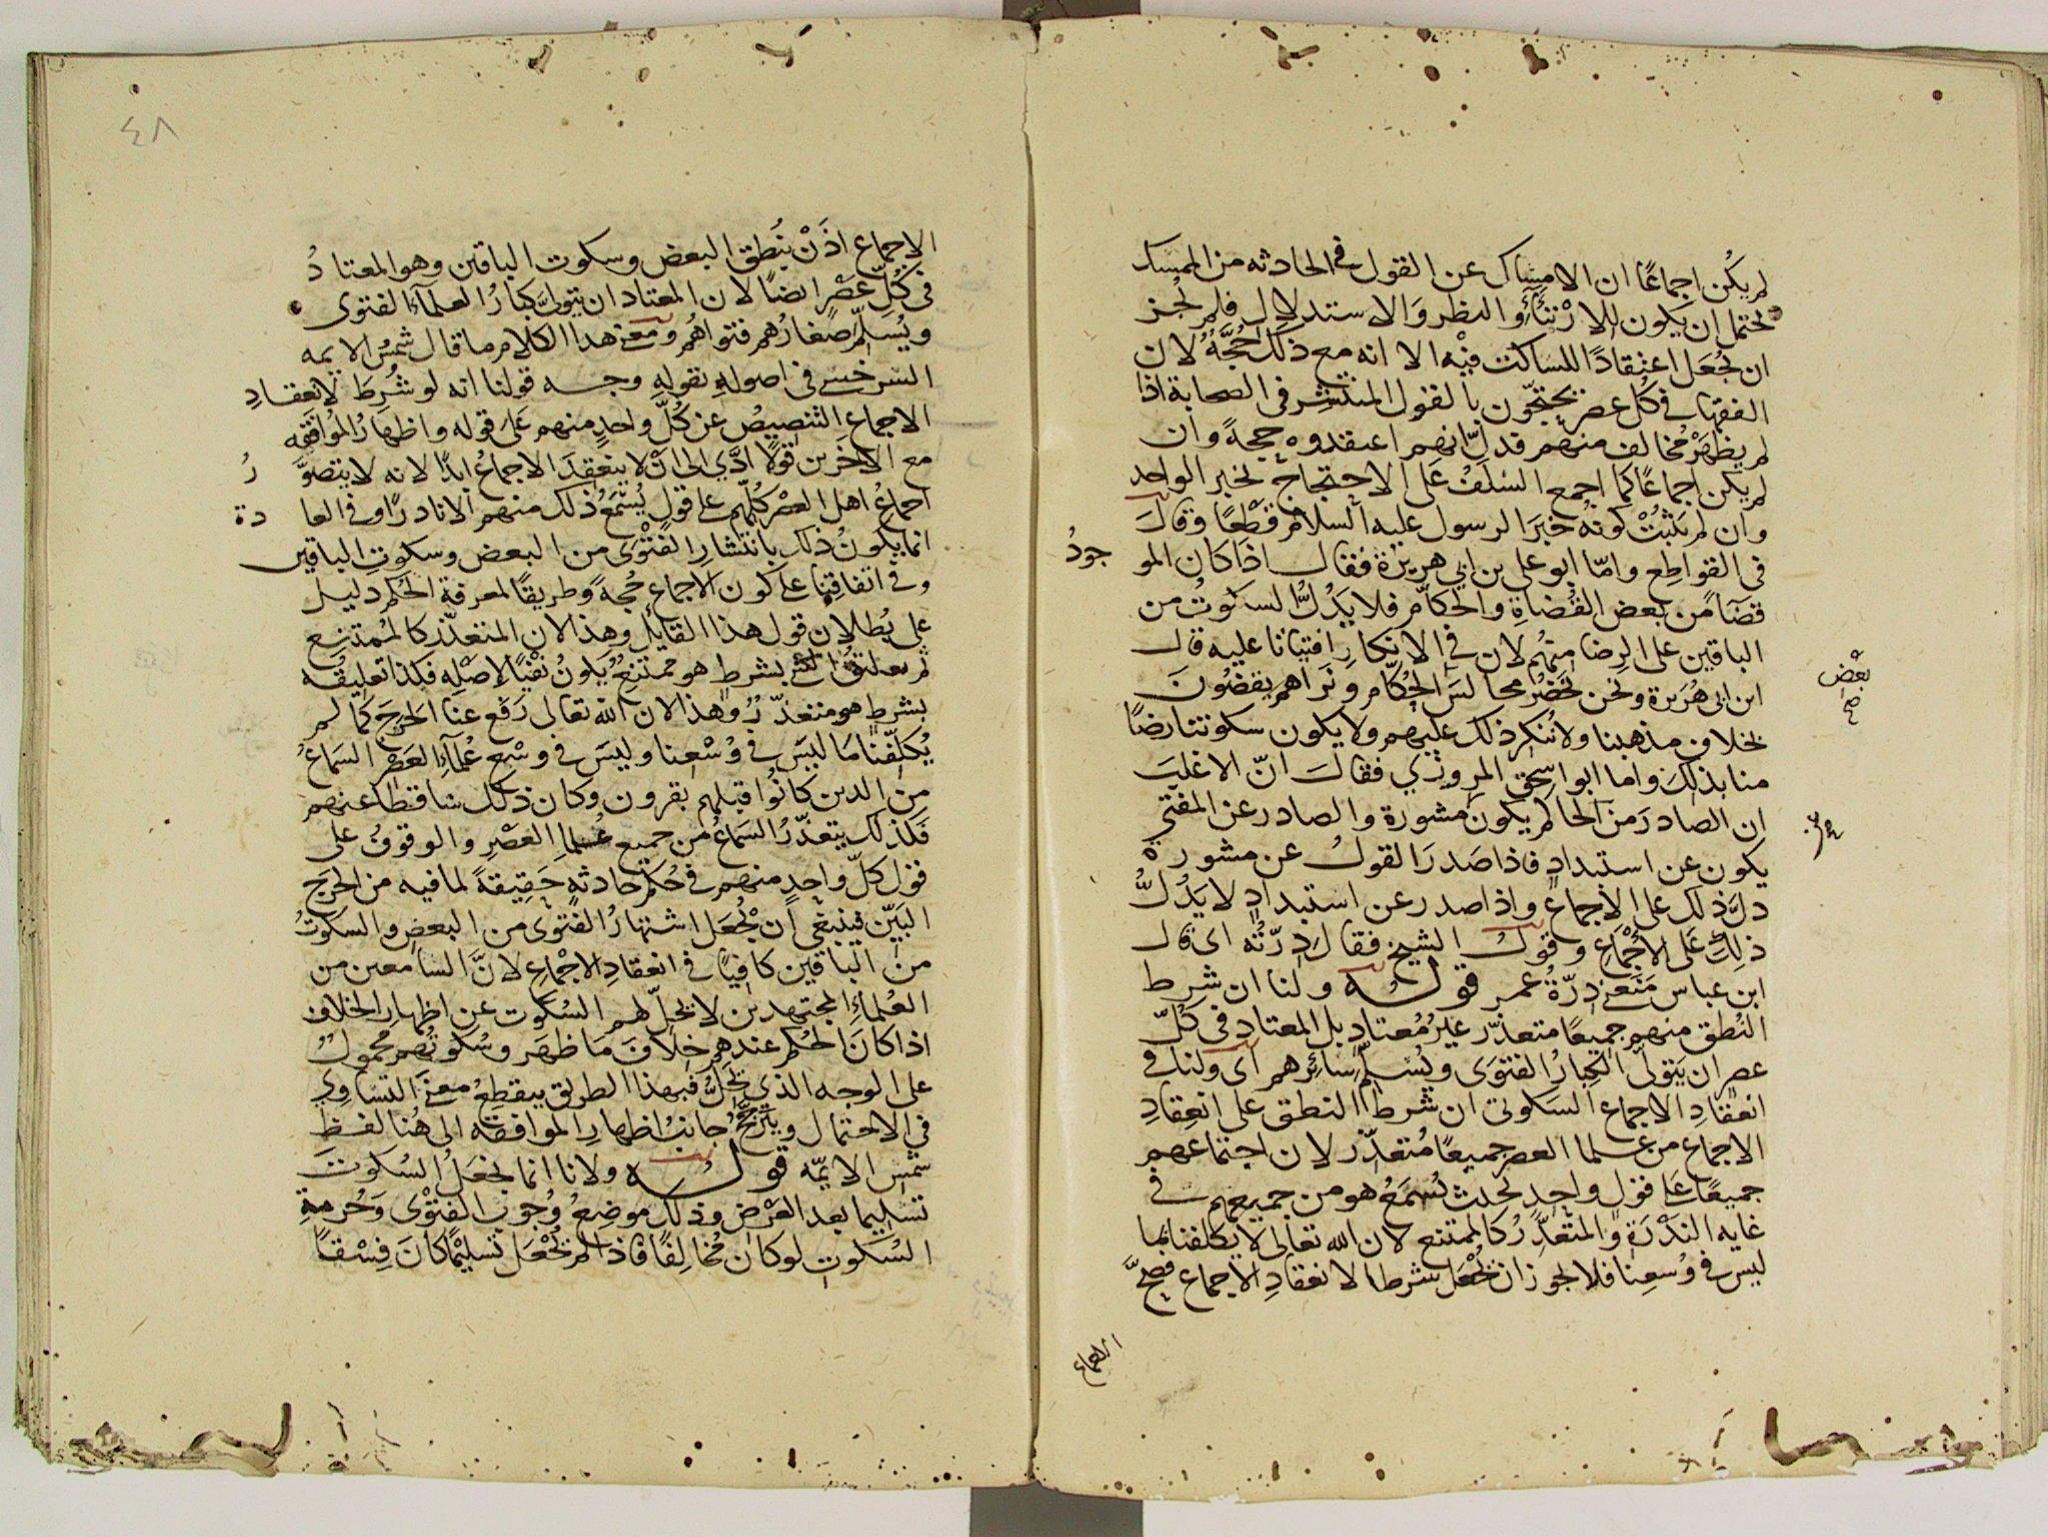 لم يكن اجماعًا ان الامساك عن القول في الحادثه من الممسك
يحتمل ان يكون للارتئاء والنظر والاستدلال فلم يجز
ان يجعل اعتقادًا للساكت فيه الا انه مع ذلك حجة لان
الفقها في كل عصر يحتجون بالقول المنتشر في الصحابة اذا
لم يظهر مخالف منهم فدل انهم اعتقدوه حجة وان
لم يكن اجماعًا كما اجمع السلف على الاحتجاج بخبر الواحد
وان لم يثبت كونه خبر الرسول عليه السلام قطعًا وقال
في القواطع واما ابو علي بن ابي هريرة فقال اذا كان المو
جود
قضآ من بعض القضاة والحكام فلا يدل السكوت من
الباقين على الرضا منهم لان في الانكار افتياتا عليه قال
بعض
ابن ابي هريرة ونحن نحضر مجالس الحكام ونراهم يقضون
بخلاف مذهبنا ولا ننكر ذلك عليهم ولا يكون سكوتنا رضًا
منا بذلك واما ابو اسحق المروزي فقال ان الاغلب
ان الصادر من الحاكم يكون مشورة والصادر عن المفتي
يكون عن استبداد فاذا صدر القول عن مشورة
دل ذلك على الاجماع واذا صدر عن استبداد لا يدل
ذلك على الاجماع وقول الشيخ فقال درته اى قال
ابن عباس منعني درة عمر قوله ولنا ان شرط
النطق منهم جميعًا متعذر غير معتاد بل المعتاد في كل
عصر ان يتولى الكبار الفتوى ويسلم سائرهم اى ولنا في
انعقاد الاجماع السكوتى ان شرط النطق على انعقاد
الاجماع من علما العصر جميعًا متعذر لان اجتماعهم
جميعًا على قول واحد بحيث يسمع هو من جميعهم في
غايه الندرة والمتعذر كالممتنع لان الله تعالى لا يكلفنا بما
ليس في وسعنا فلا يجوز ان يجعل شرطا لانعقاد الاجماع فصح
الاجماع
٤٨
الاجماع اذن بنطق البعض وسكوت الباقين وهو المعتاد
في كل عصر ايضًا لان المعتاد ان يتولى كبار العلمآء الفتوى
ويسلم صغارهم فتواهم ومعنى هذا الكلام ما قال شمس الايمه
السرخسي في اصوله بقوله وجه قولنا انه لو شرط لانعقاد
الاجماع التنصيص عن كل واحد منهم على قوله واظهار الموافقه
مع الاخرين قولًا ادى الى ان لا ينعقد الاجماع ابدًا لانه لا يتصور
اجماع اهل العصر كلهم على قول يسمع ذلك منهم الا نادرًا وفي العادة
انما يكون ذلك بانتشار الفتوى من البعض وسكوت الباقين
وفي اتفاقنا على كون الاجماع حجة وطريقًا لمعرفة الحكم دليل
على بطلان قول هذا القايل وهذا لان المتعذر كالممتنع
ثم تعليق الشي بشرط هو ممتنع يكون نفيًا لاصله فكذا تعليقه
بشرط هو متعذر وهذا لان الله تعالى رفع عنا الحرج كما لم
يكلفنا ما ليس في وسعنا وليس في وسع علمآء العصر السماع
من الذين كانوا قبلهم بقرون وكان ذلك ساقطًا عنهم
فكذلك يتعذر السماع من جميع علما العصر والوقوف على
قول كل واحد منهم في حكم حادثه حقيقة لما فيه من الحرج
البين فينبغي ان يجعل اشتهار الفتوى من البعض والسكوت
من الباقين كافيًا في انعقاد الاجماع لان السامعين من
العلماء المجتهدين لا يحل لهم السكوت عن اظهار الخلاف
اذا كان الحكم عندهم خلاف ما ظهر وسكوتهم محمول
على الوجه الذي يحل فبهذا الطريق ينقطع معنى التساوي
في الاحتمال ويترجح جانب اظهار الموافقه الى هنا لفظ
شمس الايمه قوله ولانا انما نجعل السكوت
تسليما بعد العرض وذلك موضع وجوب الفتوى وحرمة
السكوت لو كان مخالفًا فاذا لم يجعل تسليمًا كان فسقًا